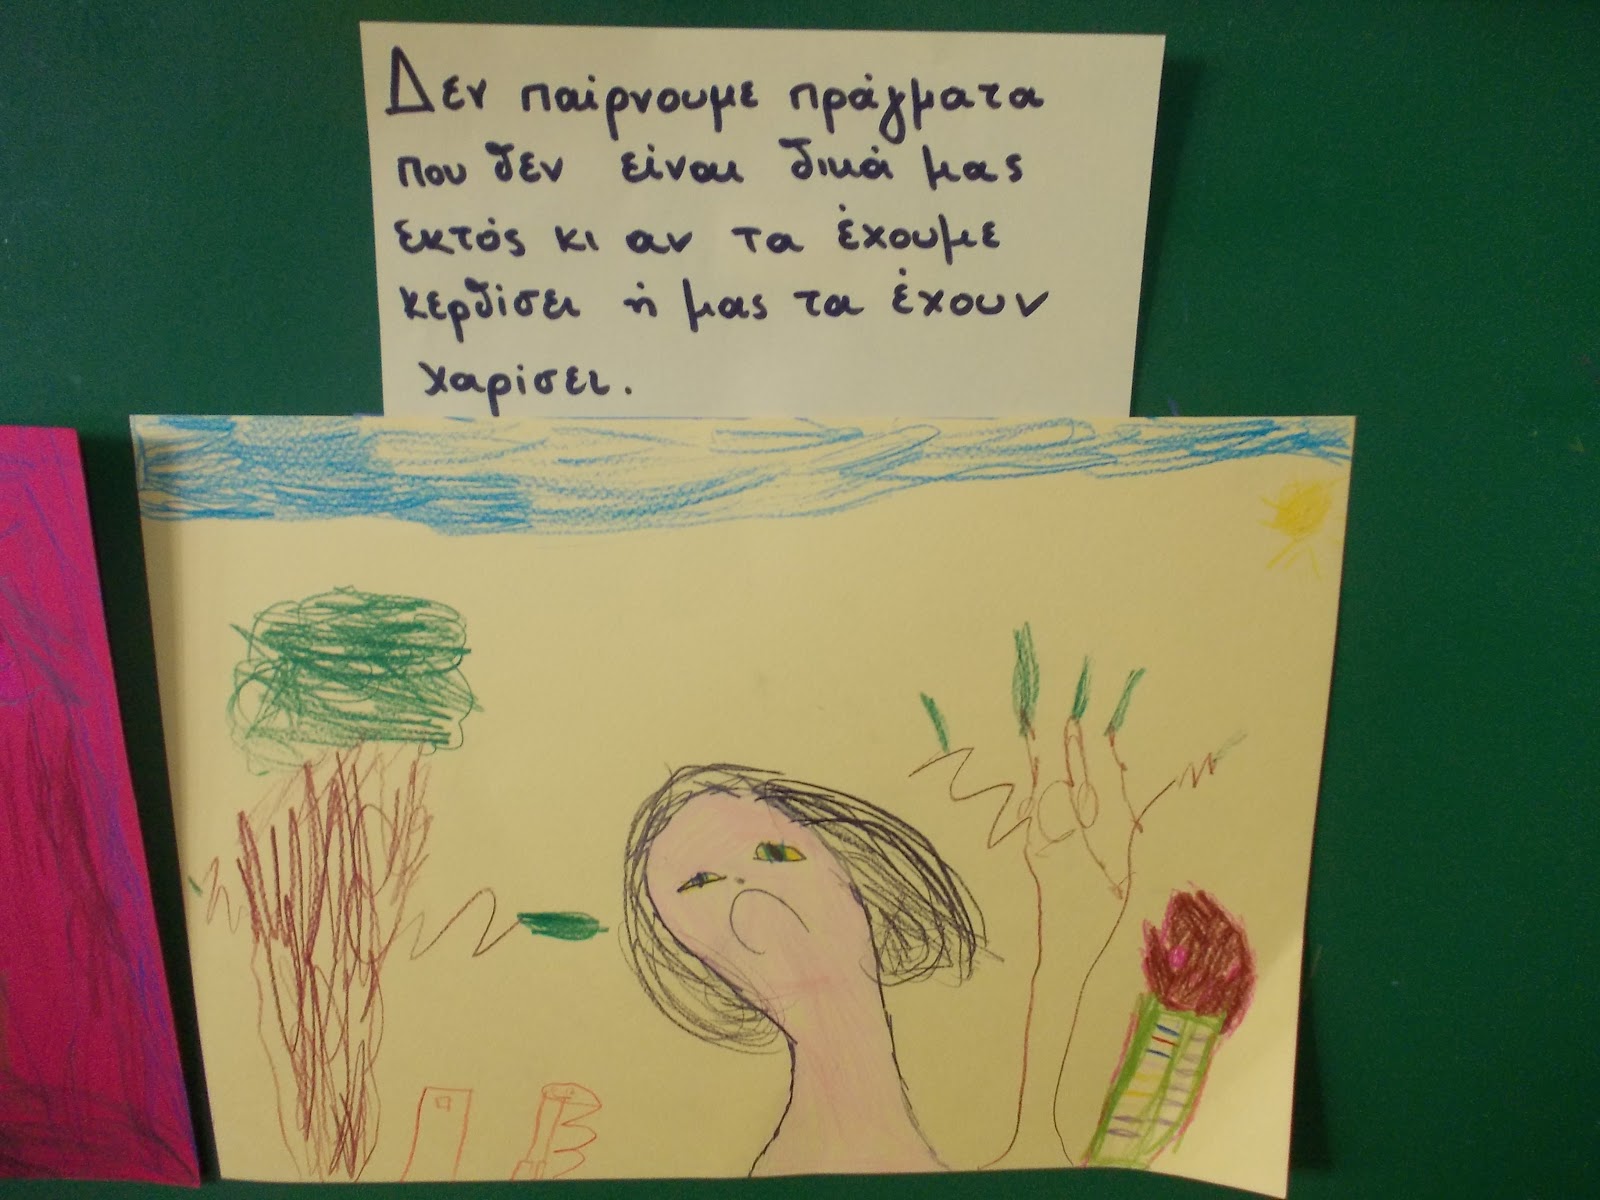 Δεν παίρνουμε πράγματα
που δεν είναι δικά μας
εκτός κι αν τα έχουμε
κερδίσει ή μας τα έχουν
χαρίσει.